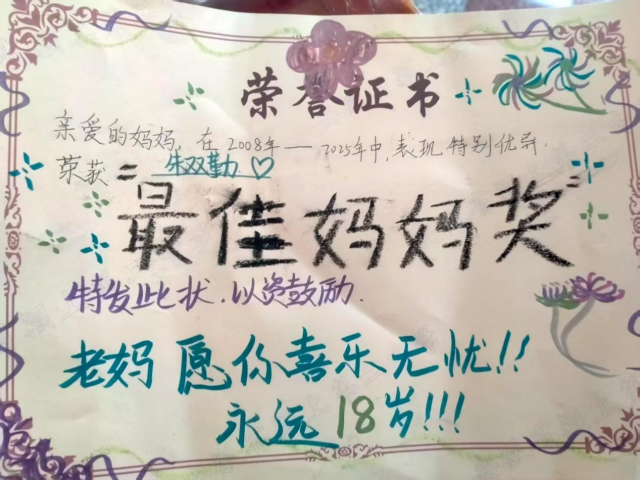 荣誉证书
亲爱的妈妈，在2008年——2025年中，表现特别优异.
荣获 朱双勤 ♡
"最佳妈妈奖"
特发此状.以资鼓励.
老妈 愿你喜乐无忧!!
永远18岁!!!